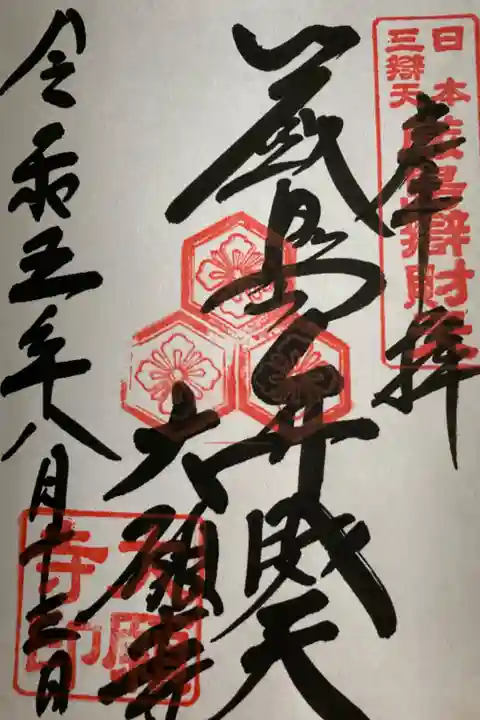 日本
三辯天
厳島辯財天
奉拝
厳島弁財天
大願寺
令和五年八月十三日
大願
寺印